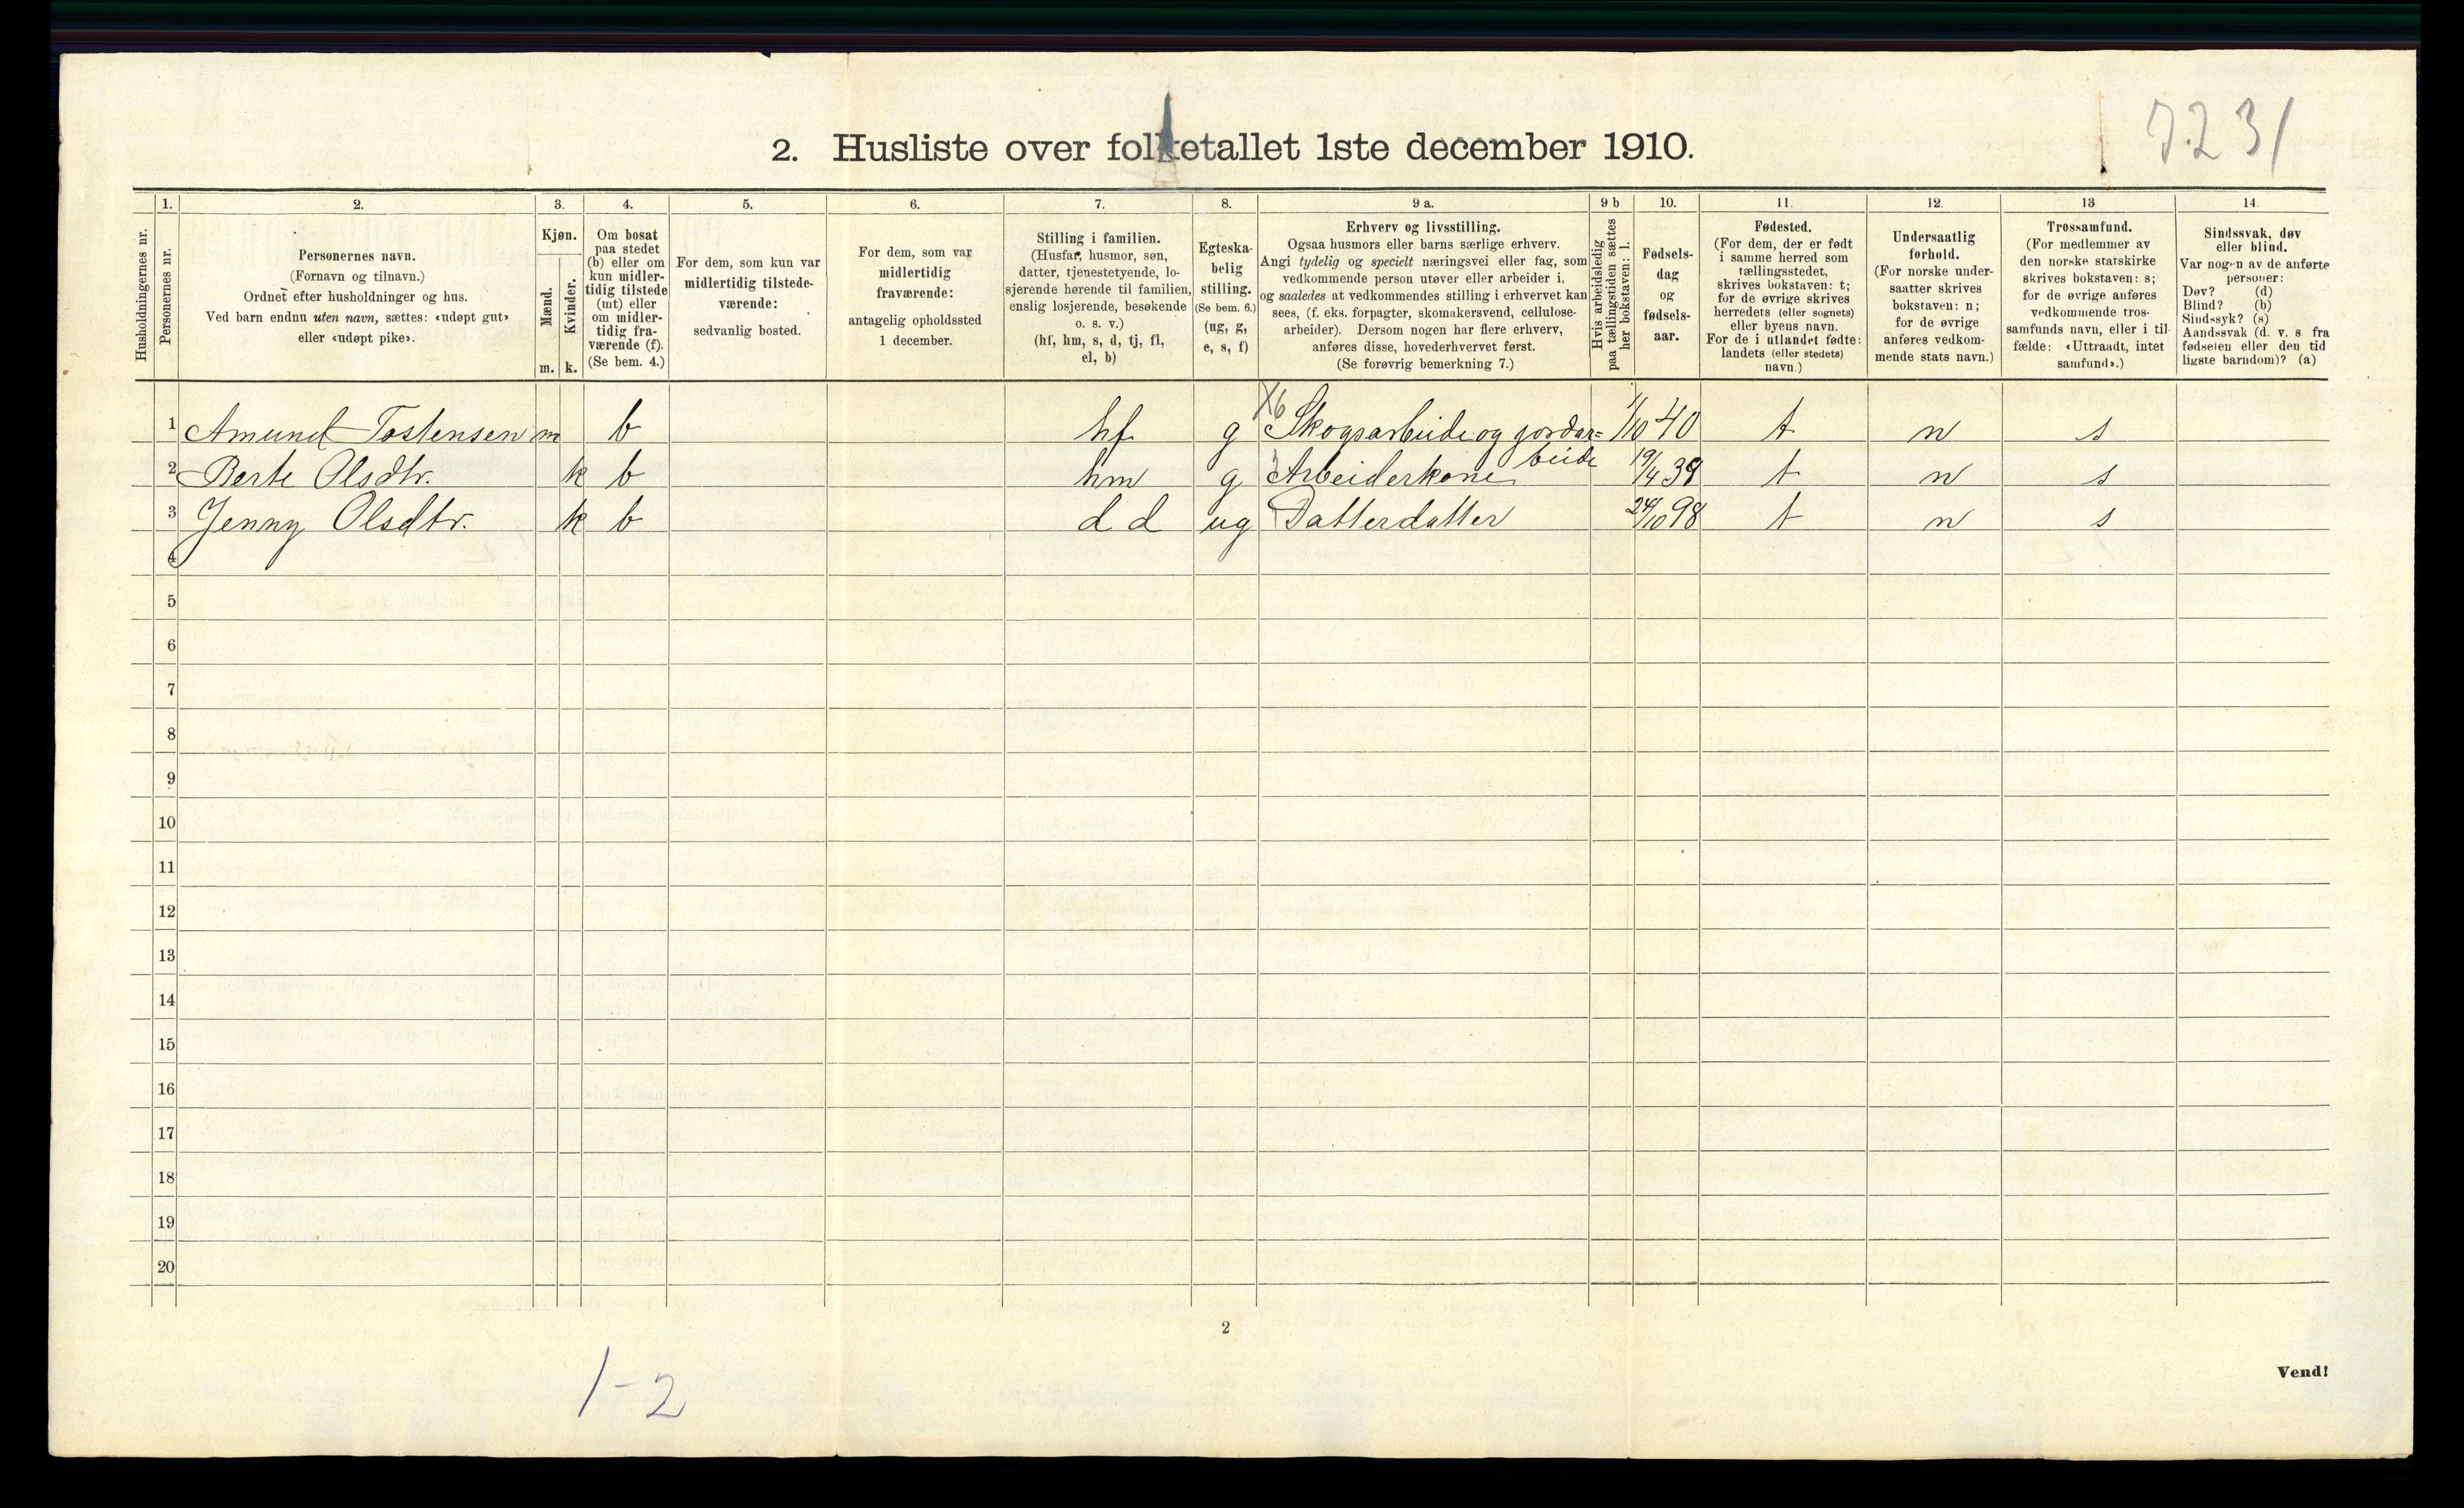 2. Husliste over folketallet 1ste december 1910.
1. 2. 3. 4. 5. 6. 7. 8. 9 a. 9 b 10. 11. 12. 13 14
Husholdningernes nr.
Personernes nr.
Personernes navn.
(Fornavn og tilnavn.)
Ordnet efter husholdninger og hus.
Ved barn endnu uten navn, sættes: «udøpt gut»
eller «udøpt pike».
Kjøn.
Mænd.
Kvinder.
m. k.
Om bosat
paa stedet
(b) eller om
kun midler-
tidig tilstede
(mt) eller
om midler-
tidig fra-
værende (f).
(Se bem. 4.)
For dem, som kun var
midlertidig tilstede-
værende:
sedvanlig bosted.
For dem, som var
midlertidig
fraværende:
antagelig opholdssted
1 december.
Stilling i familien.
(Husfar, husmor, søn,
datter, tjenestetyende, lo-
sjerende hørende til familien,
enslig losjerende, besøkende
o. s. v.)
(hf, hm, s, d, tj, fl,
el, b)
Egteska-
belig
stilling.
(Se bem. 6.)
(ug, g,
e, s, f)
Erhverv og livsstilling.
Ogsaa husmors eller barns særlige erhverv.
Angi tydelig og specielt næringsvei eller fag, som
vedkommende person utøver eller arbeider i,
og saaledes at vedkommendes stilling i erhvervet kan
sees, (f. eks. forpagter, skomakersvend, cellulose-
arbeider). Dersom nogen har flere erhverv,
anføres disse, hovederhvervet først.
(Se forøvrig bemerkning 7.)
Hvis arbeidsledig
paa tællingstiden sættes
her bokstaven: l.
Fødsels-
dag
og
fødsels-
aar.
Fødested.
(For dem, der er født
i samme herred som
tællingsstedet,
skrives bokstaven: t;
for de øvrige skrives
herredets (eller sognets)
eller byens navn.
For de i utlandet fødte:
landets (eller stedets)
navn.)
Undersaatlig
forhold.
(For norske under-
saatter skrives
bokstaven: n;
for de øvrige
anføres vedkom-
mende stats navn.)
Trossamfund.
(For medlemmer av
den norske statskirke
skrives bokstaven: s;
for de øvrige anføres
vedkommende tros-
samfunds navn, eller i til-
fælde: «Uttraadt, intet
samfund».)
Sindssvak, døv
eller blind.
Var nogen av de anførte
personer:
Døv? (d)
Blind? (b)
Sindssyk? (s)
Aandssvak (d. v. s. fra
fødselen eller den tid
ligste barndom)? (a)
1 Amund Tostensen m b hf g Skogsarbeide og jordar= 1/10 40 t n s
beide
2 Berte Olsdtr. k b hm g Arbeiderkone 19/4 39 t n s
3 Jenny Olsdtr. k b d d ug Datterdatter 24/10 98 t n s
4
5
6
7
8
9
10
11
12
13
14
15
16
17
18
19
20
2
1-2
Vend!